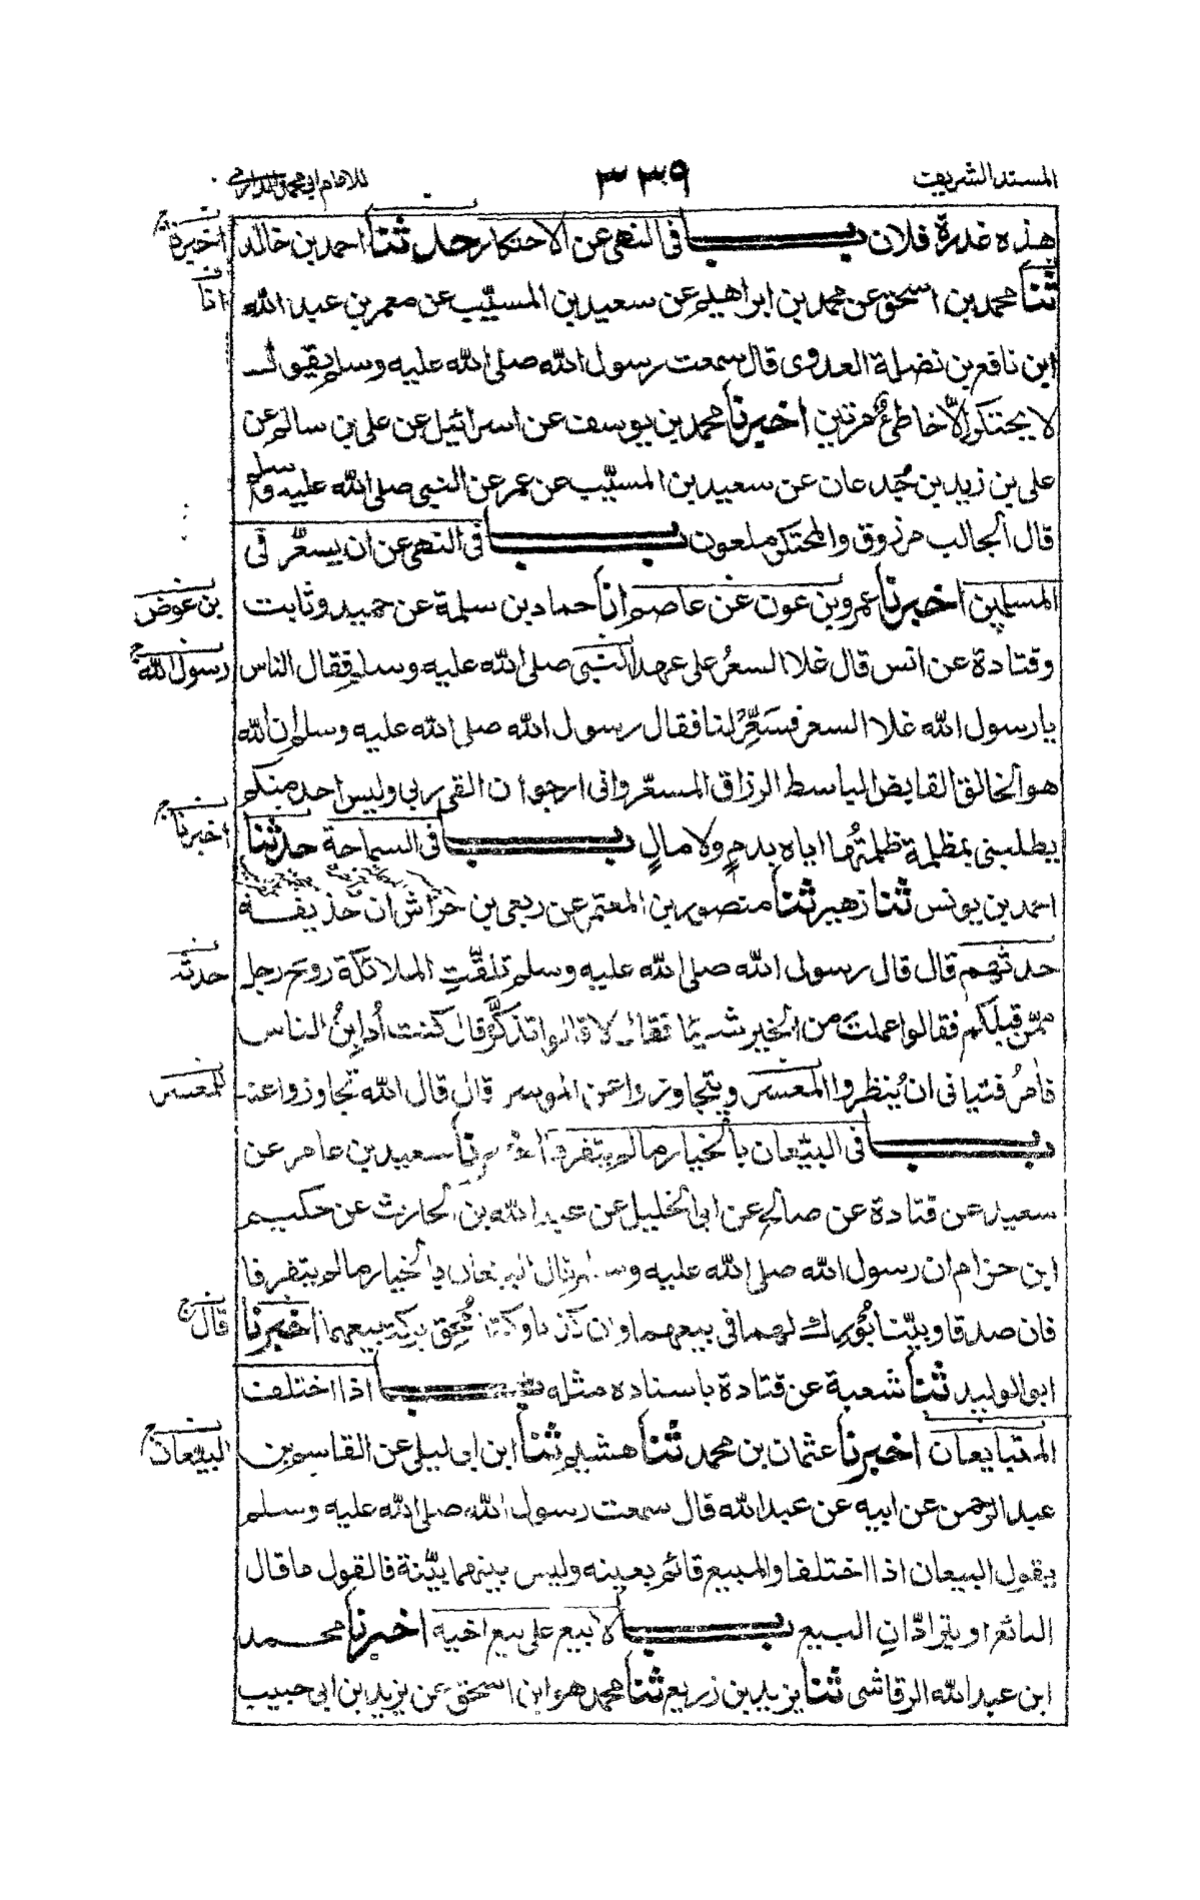 المسند الشريف ٣٣٩ للامام ابي محمد الدارمي
هذه غدرة فلان باب في النهي عن الاحتكار حدثنا احمد بن خالد
اخبرنا
ثنا محمد بن اسحق عن محمد بن ابراهيم عن سعيد بن المسيّب عن معمر بن عبد الله
ابن نافع بن نضلة العدوى قال سمعت رسول الله صلى الله عليه وسلم يقول
لا يحتكر الّا خاطئٌ مرتين اخبرنا محمد بن يوسف عن اسرائيل عن علي بن سالم عن
علي بن زيد بن جُدعان عن سعيد بن المسيّب عن عمر عن النبي صلى الله عليه وسلم
قال الجالب مرزوق والمحتكر ملعون باب في النهي عن ان يسعّر في
المسلمين اخبرنا عمرو بن عون عن عاصم انا حماد بن سلمة عن حميد وثابت
بن عوض
وقتادة عن انس قال غلا السعرُ على عهد النبي صلى الله عليه وسلم فقال الناس
رسول الله
يا رسول الله غلا السعر فسَعِّرْ لنا فقال رسول الله صلى الله عليه وسلم ان الله
هو الخالق القابض الباسط الرزاق المسعّر وانى ارجو ان القى ربي وليس احد منكم
يطلبنى بمظلمة ظلمتُها اياه بدمٍ ولا مالٍ باب في السماحة حدثنا
اخبرنا
احمد بن يونس ثنا زهير ثنا منصور بن المعتمر عن ربعي بن خراش ان حذيفة
حدثهم قال قال رسول الله صلى الله عليه وسلم تلقّتِ الملائكة روح رجل
حدثه
ممّن قبلكم فقالوا عملتَ من الخير شيئا فقال لا قالوا تذكّر قال كنت أُداينُ الناس
فآمرُ فتيانى ان يُنظروا المعسر ويتجاوزوا عن الموسر قال قال الله تجاوزوا عنه
للمعسر
باب في البيّعان بالخيار ما لم يتفرقا اخبرنا سعيد بن عامر عن
سعيد عن قتادة عن صالح عن ابى الخليل عن عبد الله بن الحارث عن حكيم
ابن حزام ان رسول الله صلى الله عليه وسلم قال البيعان بالخيار ما لم يتفرقا
فان صدقا وبيّنا بُورك لهما فى بيعهما وان كذبا وكتما مُحِق بركة بيعهما اخبرنا
قال
ابو الوليد ثنا شعبة عن قتادة باسناده مثله باب اذا اختلف
المتبايعان اخبرنا عثمان بن محمد ثنا هشيم ثنا ابن ابى ليلى عن القاسم بن
البيعان
عبد الرحمن عن ابيه عن عبد الله قال سمعت رسول الله صلى الله عليه وسلم
يقول البيعان اذا اختلفا والمبيع قائم بعينه وليس بينهما بيّنة فالقول ما قال
البائع او يترادّانِ البيع باب لا يبيع على بيع اخيه اخبرنا محمد
ابن عبد الله الرقاشى ثنا يزيد بن زريع ثنا محمد هو ابن اسحق عن يزيد ابن ابى حبيب